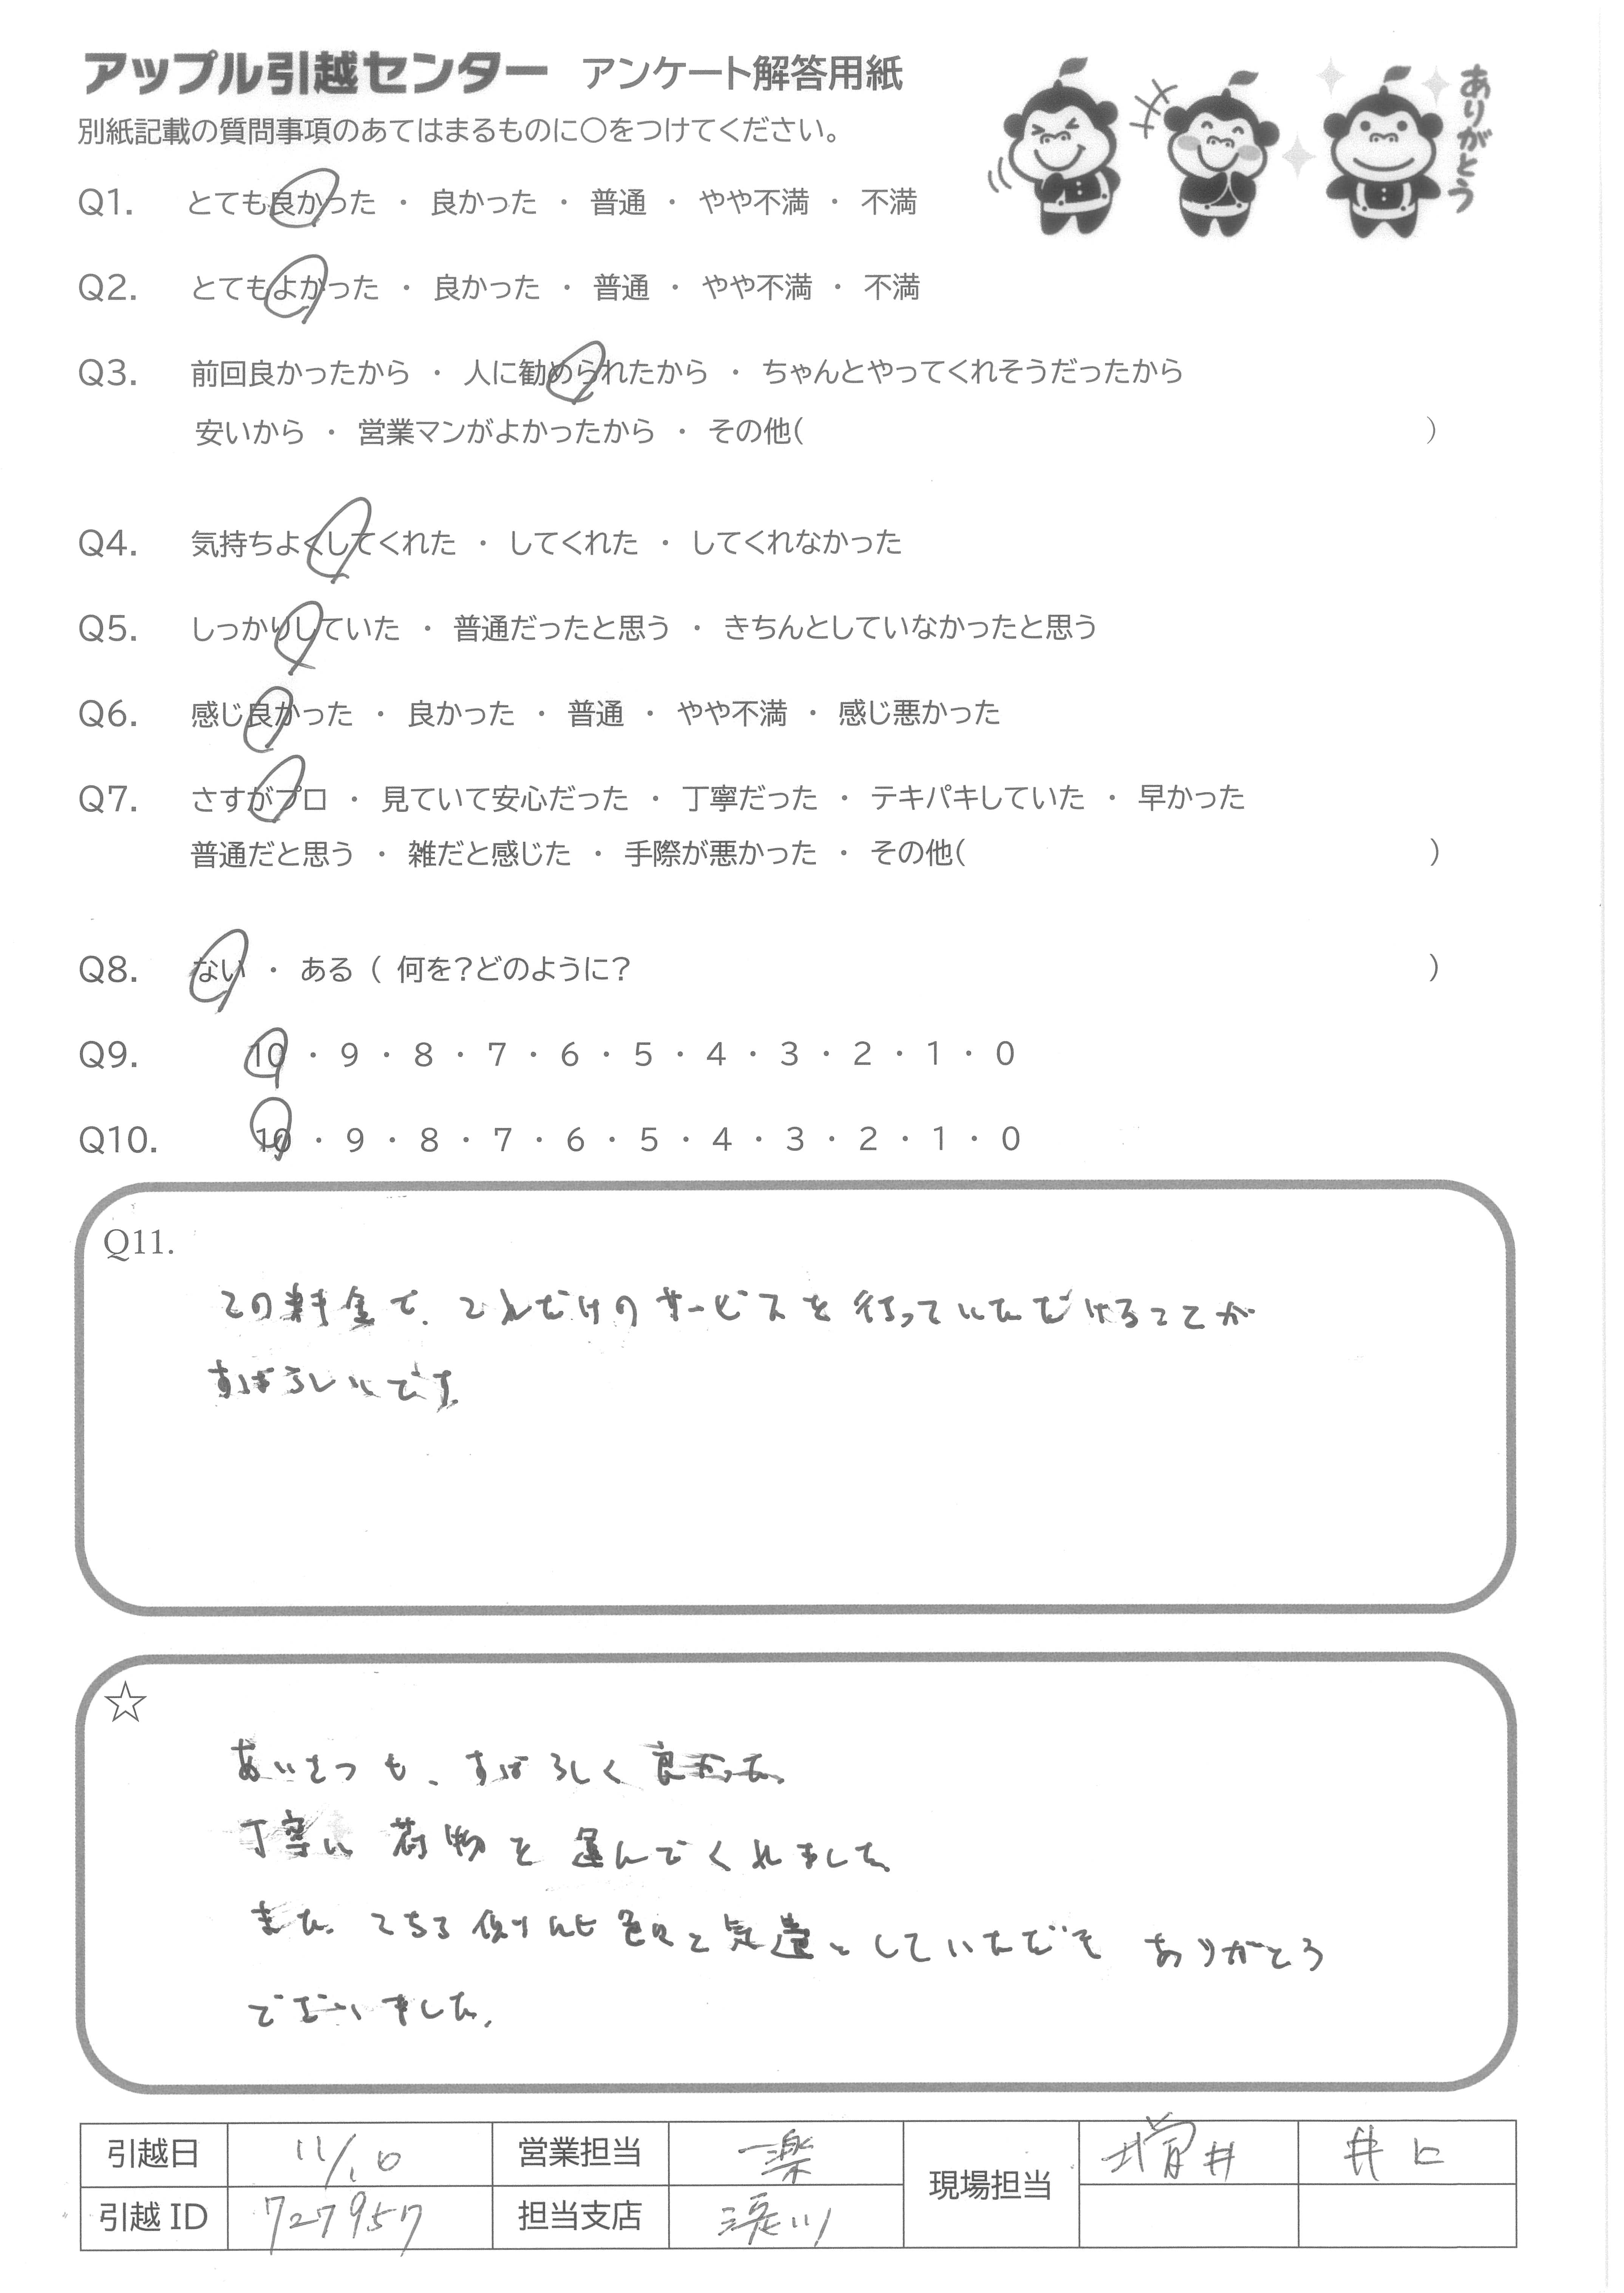 アップル引越センター アンケート解答用紙
ありがとう
別紙記載の質問事項のあてはまるものに〇をつけてください。
Q1. とても良かった ・ 良かった ・ 普通 ・ やや不満 ・ 不満
Q2. とてもよかった ・ 良かった ・ 普通 ・ やや不満 ・ 不満
Q3. 前回良かったから ・ 人に勧められたから ・ ちゃんとやってくれそうだったから
安いから ・ 営業マンがよかったから ・ その他( )
Q4. 気持ちよくしてくれた ・ してくれた ・ してくれなかった
Q5. しっかりしていた ・ 普通だったと思う ・ きちんとしていなかったと思う
Q6. 感じ良かった ・ 良かった ・ 普通 ・ やや不満 ・ 感じ悪かった
Q7. さすがプロ ・ 見ていて安心だった ・ 丁寧だった ・ テキパキしていた ・ 早かった
普通だと思う ・ 雑だと感じた ・ 手際が悪かった ・ その他( )
Q8. ない ・ ある ( 何を?どのように? )
Q9. 10 ・ 9 ・ 8 ・ 7 ・ 6 ・ 5 ・ 4 ・ 3 ・ 2 ・ 1 ・ 0
Q10. 10 ・ 9 ・ 8 ・ 7 ・ 6 ・ 5 ・ 4 ・ 3 ・ 2 ・ 1 ・ 0
Q11.
この料金で、これだけのサービスを行っていただけることが
すばらしいです。
☆
あいさつも、すばらしく良かった。
丁寧に荷物を運んでくれました
また、こちら側に色々と気遣としていただき ありがとう
ございました。
引越日 11/10 営業担当 一楽 現場担当 増井 井口
引越 ID 727957 担当支店 淀川